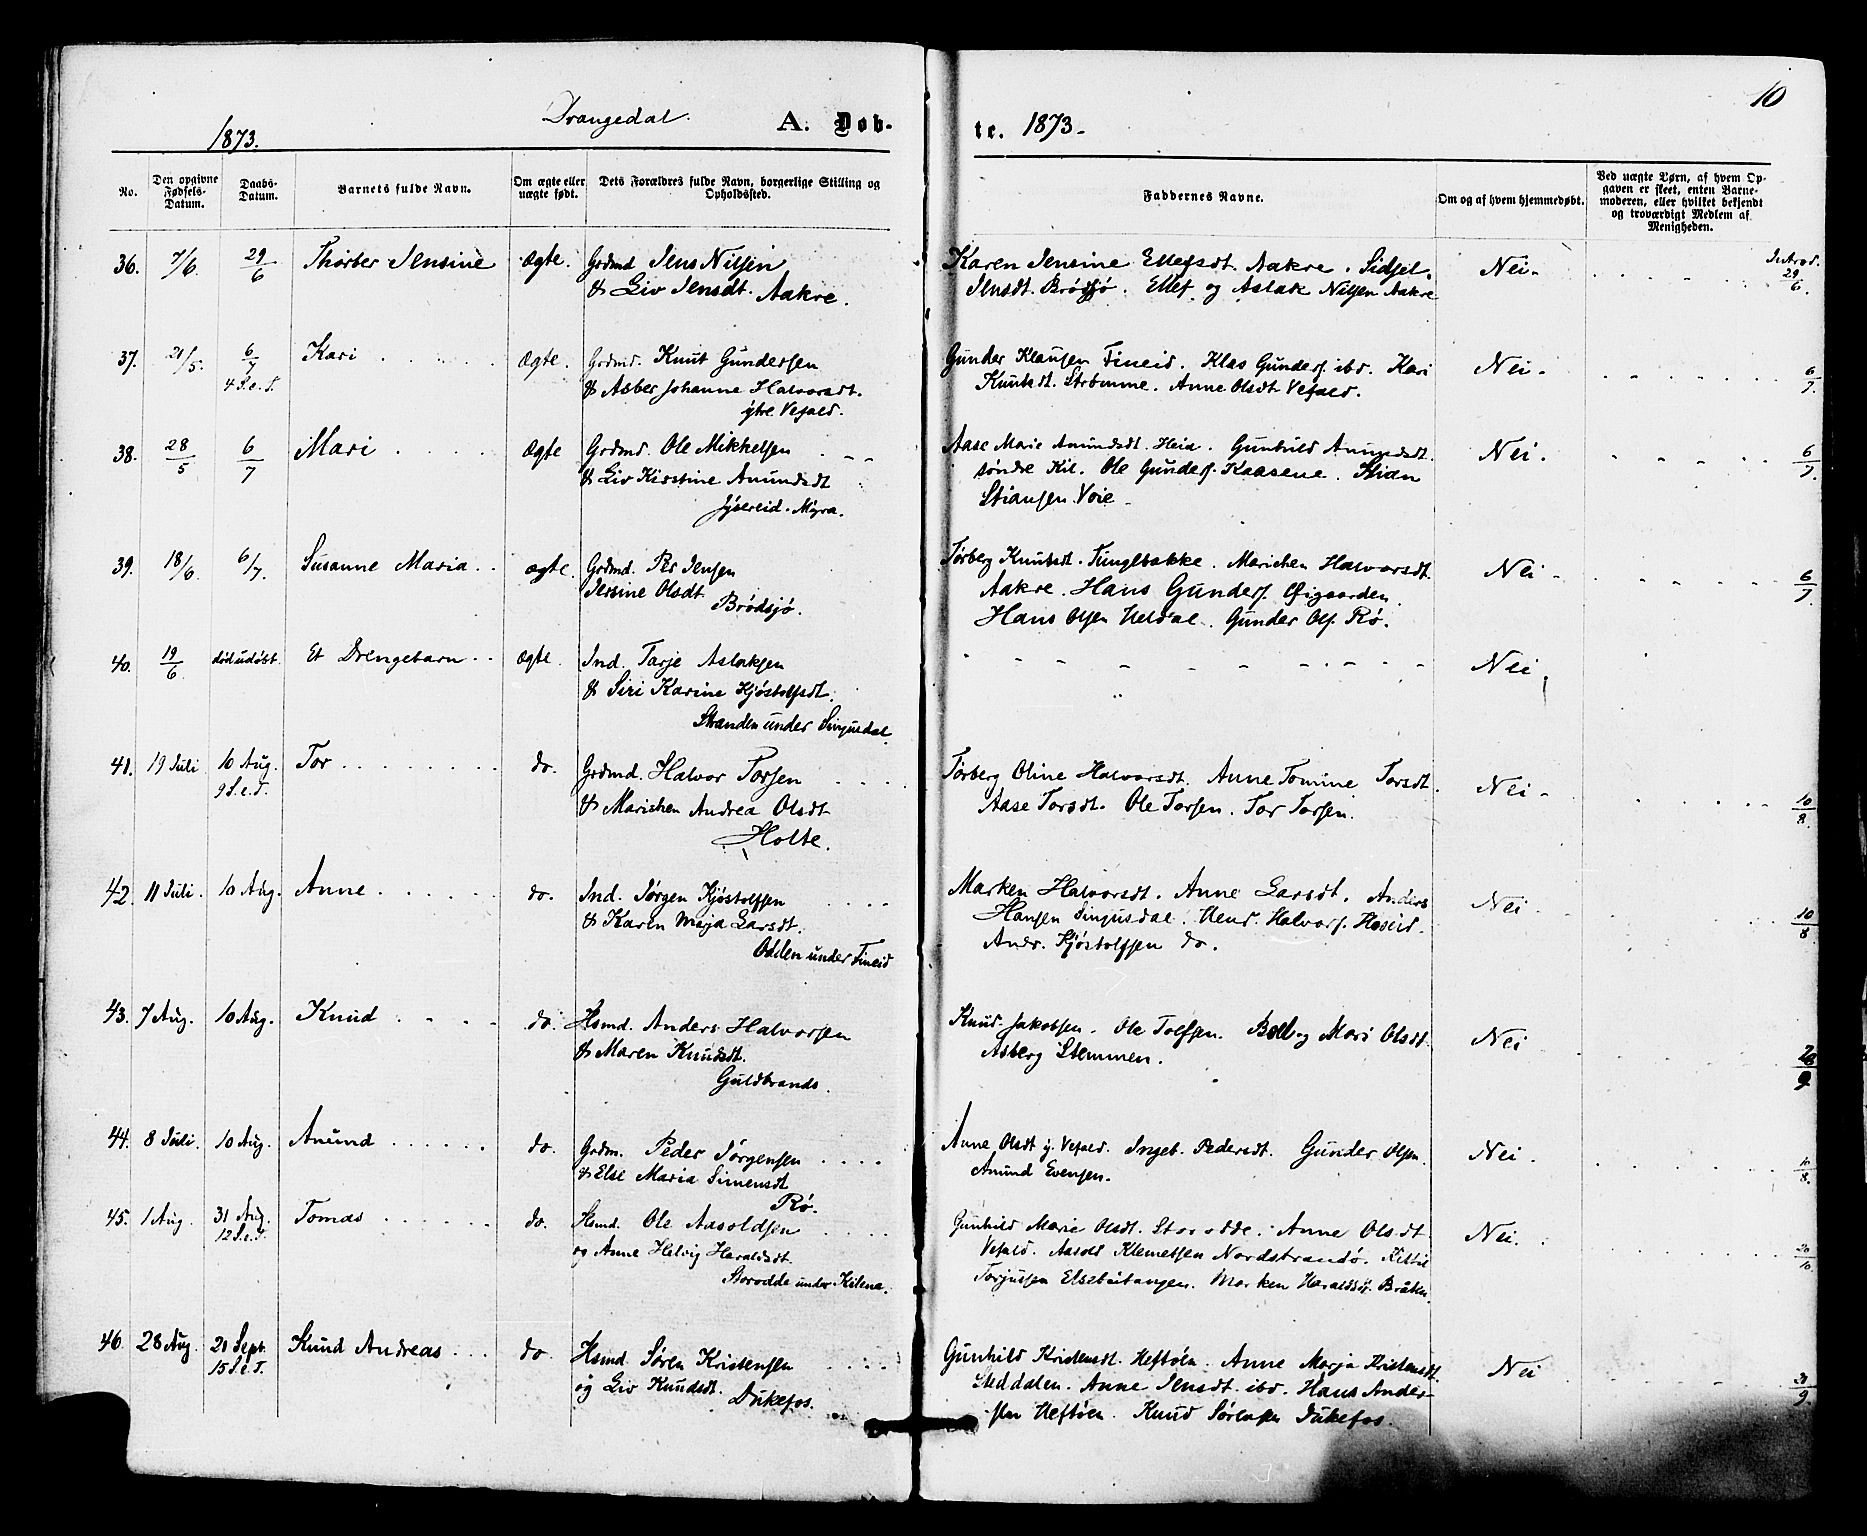 10
Drangedal.
1873.
A. Døb-
te. 1873.
No.
Den opgivne Fødsels-Datum.
Daabs-Datum.
Barnets fulde Navn.
Om ægte eller uægte født.
Dets Forældres fulde Navn, borgerlige Stilling og Opholdssted.
Faddernes Navne.
Om og af hvem hjemmedøbt.
Ved uægte Børn, af hvem Op-
gaven er skeet, enten Barne-
moderen, eller hvilket bekjendt
og troværdigt Medlem af
Menigheden.
36. 7/6. 29/6 Thorber Jensine Ægte. Grdmd Jens Nilsen
& Liv Jensdt. Aakre.
Karen Jensine Ellefsdt. Aakre. Sidsel
Jensdt. Brødsjø. Ellef og Aslak Nilsen Aakre
Nei. Introd. 29/6.
37. 21/5. 6/7 Kari Ægte. Grdmd. Knut Gundersen
4 S.e.T. & Asber Johanne Halvorsdt.
ytre Vefald.
Gunder Klausen Fineid. Klas Gunders. ibd. Kari
Knutsdt. Strømme. Anne Olsdt Vefald.
Nei. 6/7.
38. 28/5 6/7 Mari Ægte Grdmd. Ole Mikkelsen
& Liv Kirstine Anundsdt
Myra.
Aase Marie Anundsdt. Heia. Gunhild Anundsdt.
søndre Kil. Ole Gunders. Kaasene. Stian
Stiansen Voie
Nei. 6/7.
39. 18/6. 6/7. Susanne Maria ægte. Grdmd. Per Jensen
Jensine Olsdt
Brødsjø.
Tørberg Knutsdt. Tunglbakke. Marichen Halvorsdt.
Aakre. Hans Gunders. Øigaarden.
Hans Olsen Heldal. Gunder Ols. Rø.
Nei 6/7
40. 19/6 død udøbt. Et Drengebarn ægte. Ind. Tarje Aslaksen
& Siri Karine Kjøstolfsdt.
Stranden under Singusdal.
Nei.
41. 19 Juli 10 Aug. Tor do. Grdmd. Halvor Torsen
9 S.e.T. & Marichen Andrea Olsdt
Holte.
Tørberg Oline Halvorsdt. Anne Tomine Torsdt.
Aase Torsdt. Ole Torsen. Tor Torsen.
Nei 10/8.
42. 11 Juli. 10 Aug. Anne do. Ind. Jørgen Kjøstolfsen
& Karen Marja Larsdt.
Odden under Fineid
Marken Halvorsdt. Anne Larsdt. Anders
Hansen Singusdal. Halvors.
Andr. Kjøstolfsen do.
Nei 10/8
43. 7 Aug. 10 Aug. Knud do. Hsmd. Anders Halvorsen
& Maren Knudsdt.
Guldbrands.
Knud Jakobsen. Ole Tolfsen. og Mari Olsdt.
Asberg Stemmen.
Nei
44. 8 Juli. 10 Aug. Anund do. Grdm. Peder Jørgensen
& Else Maria Simensdt
Rø.
Anne Olsdt y. Vefald. Ingeb. Pedersdt. Gunder Olsen.
Anund Evensen.
Nei. 10/8.
45. 1 Aug. 31 Aug. Tomas do. Hsmd. Ole Aasoldsen
12 S.e.T. og Anne Helvig Haraldsdt.
Storodde under Kilene.
Gunhild Marie Olsdt. Storodde. Anne Olsdt
Vefald. Aasold Klemetsen Nordstrandø. Kittil
Torjussen Marken Haraldsdt. Bråten.
Nei.
46. 28 Aug. 21 Sept. Knud Andreas do. Hsmd. Søren Kristensen
15 S.e.T. og Liv Knudsdt. Dukefos.
Gunhild Kristensdt. Heftøen. Anne Marja Kristensdt.
Steddalen. Anne Jensdt. ibd. Hans Ander-
sen Heftøen. Knud Sørensen Dukefos.
Nei